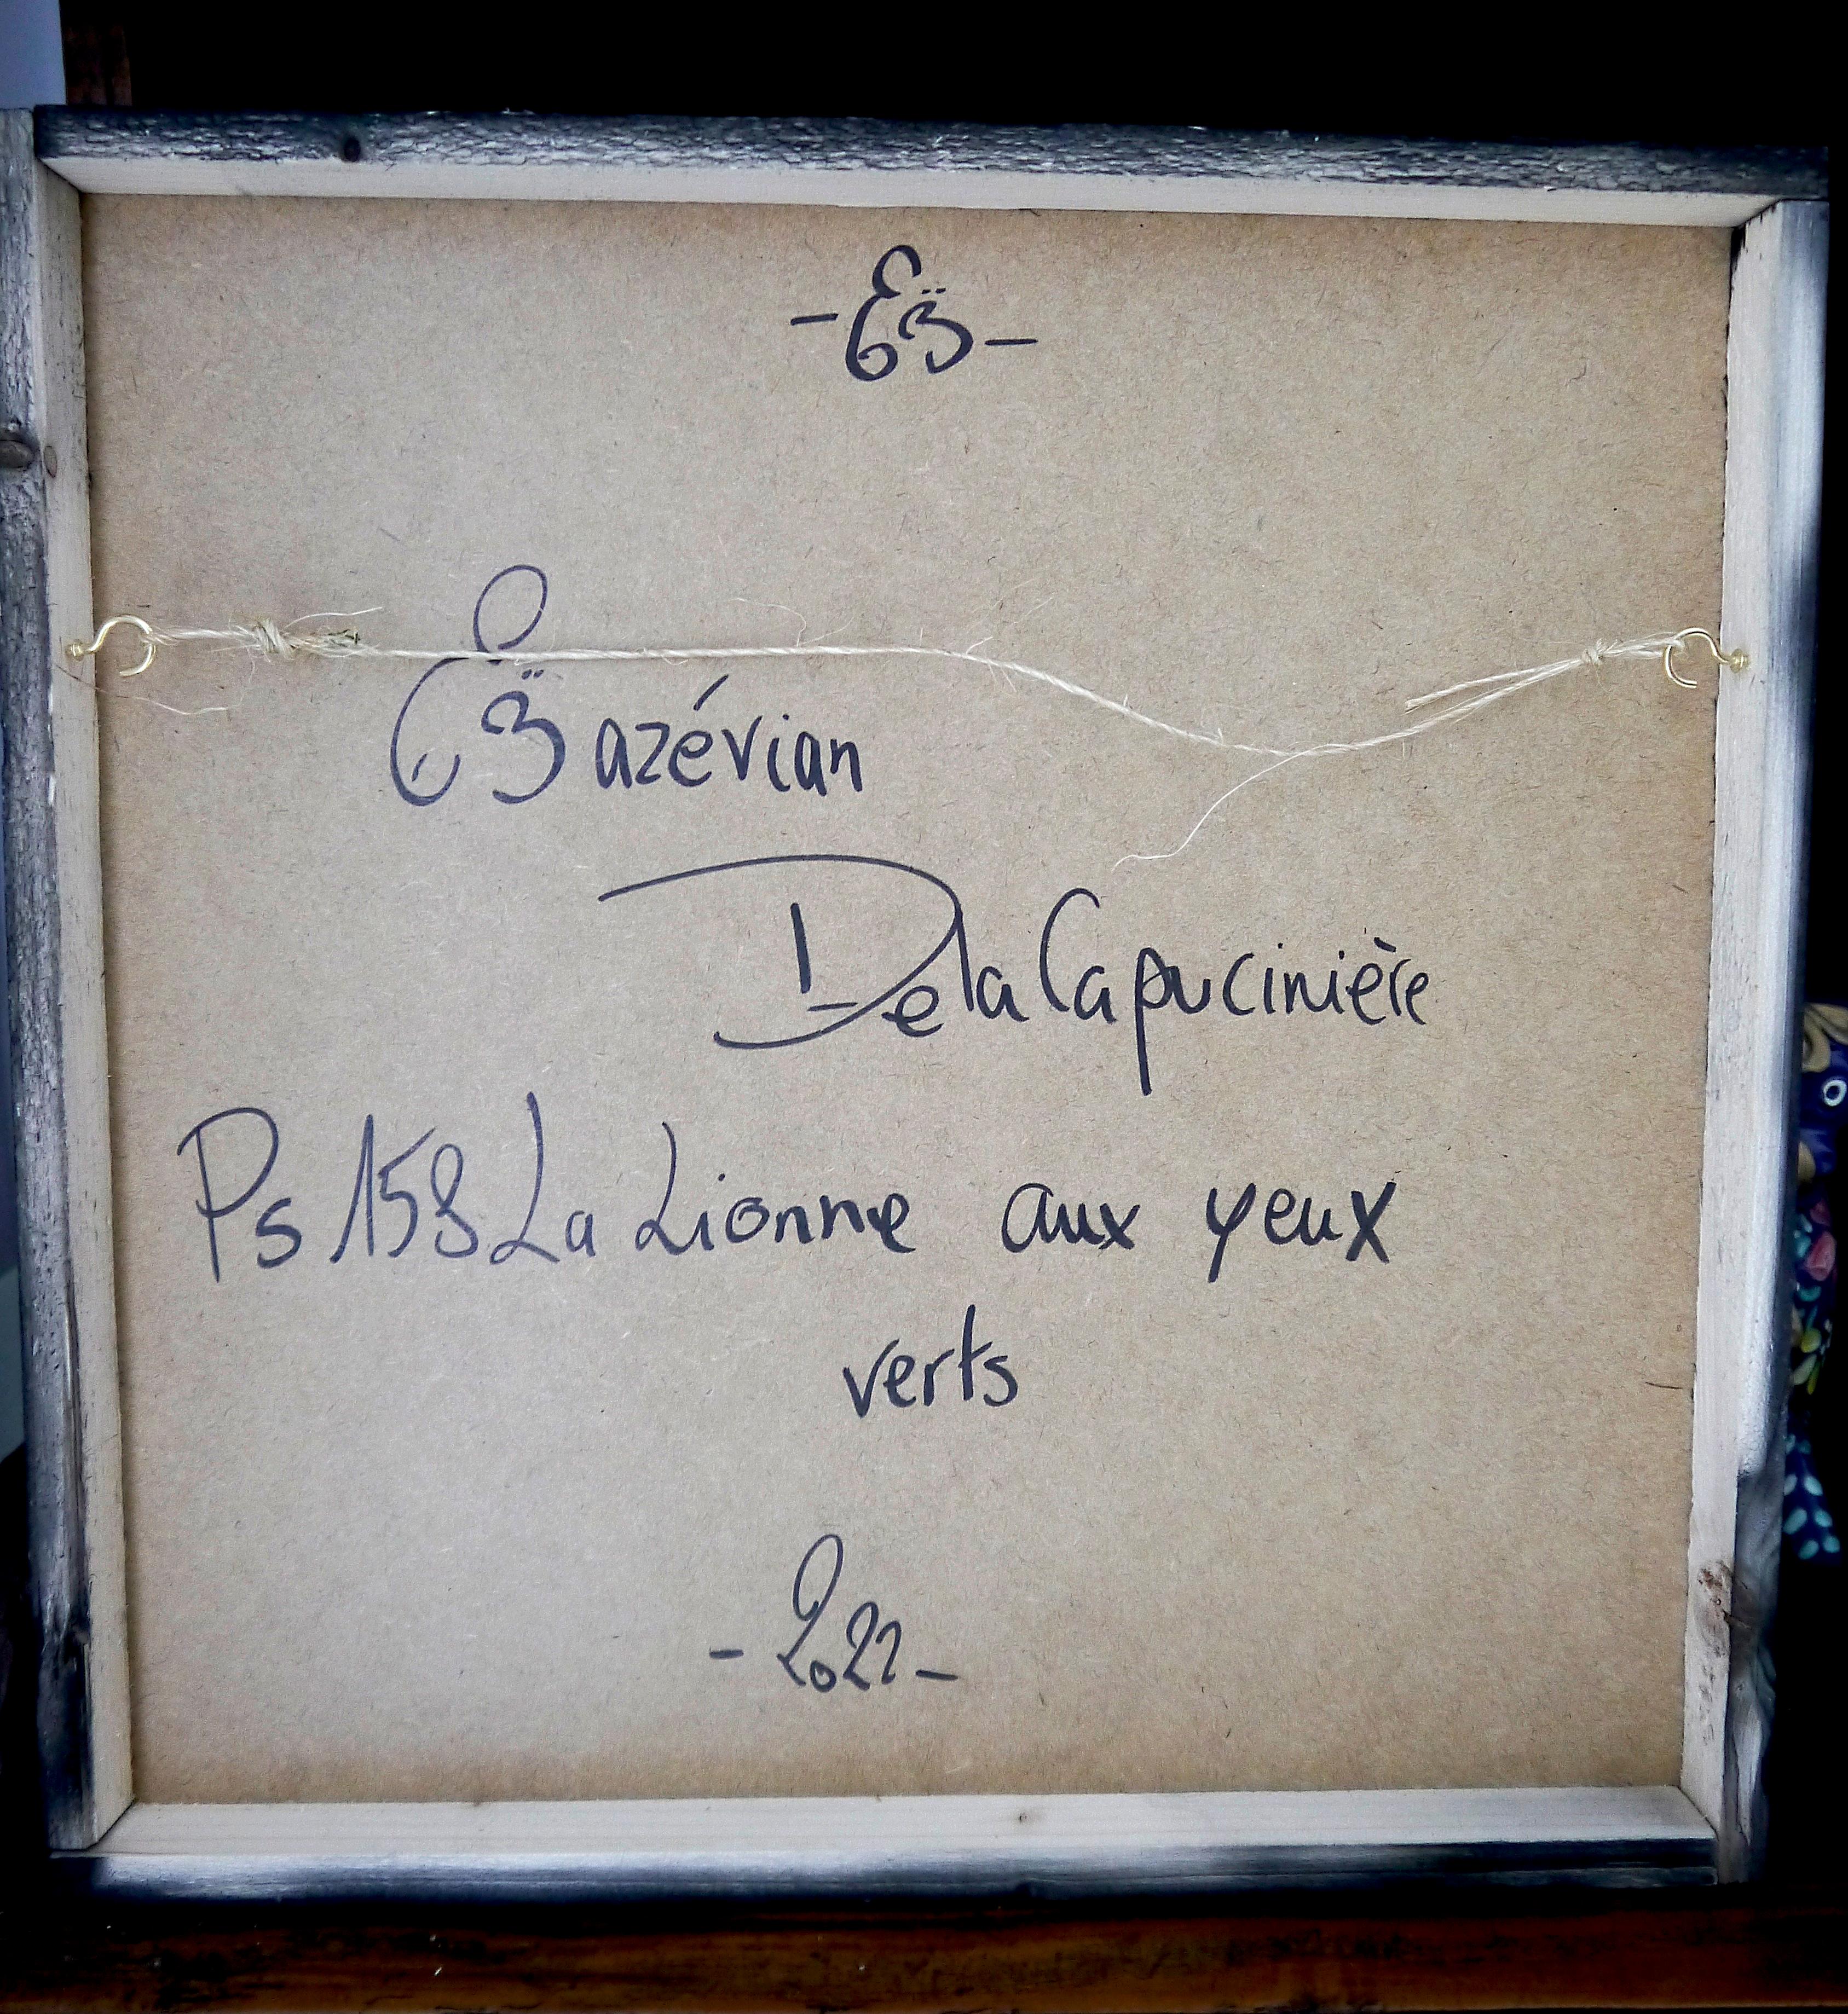 Bazévian
DelaCapucinière
Ps 158 La Lionne aux yeux
verts
-2022-